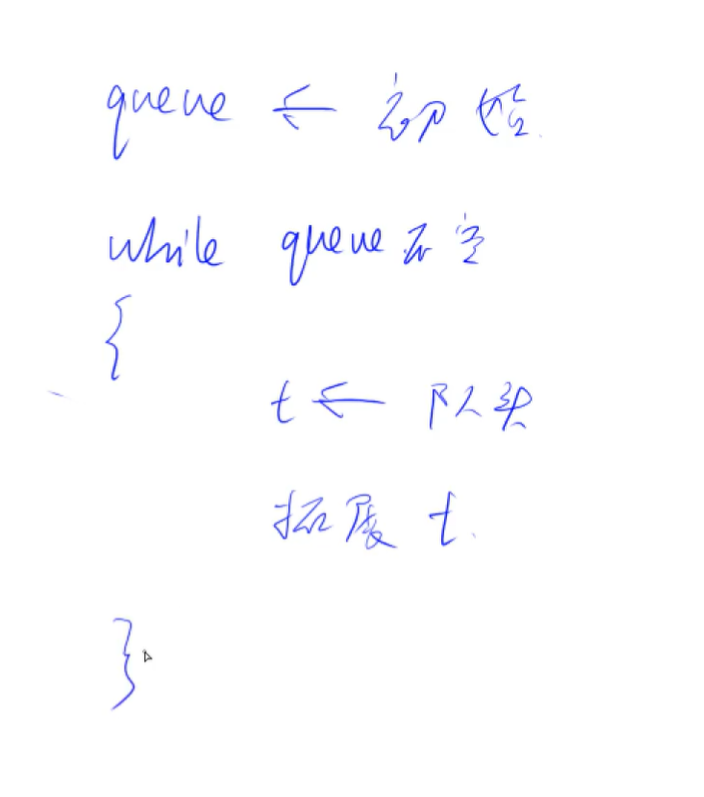 queue ← 初始
while queue 不空
{
t ← 队头
拓展 t.
}